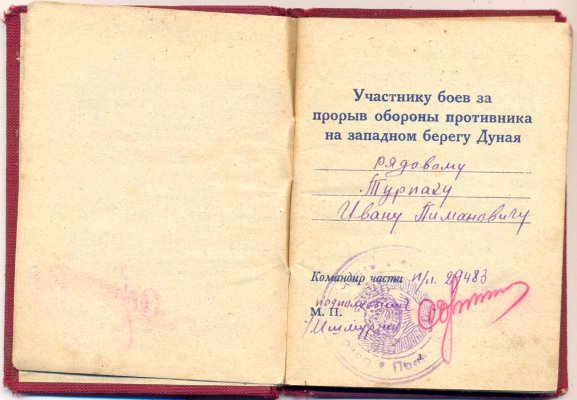 Участнику боев за
прорыв обороны противника
на западном берегу Дуная
рядовому
Турпаку
Ивану Пимановичу
Командир части п/п. 29483
подполковник
М. П.